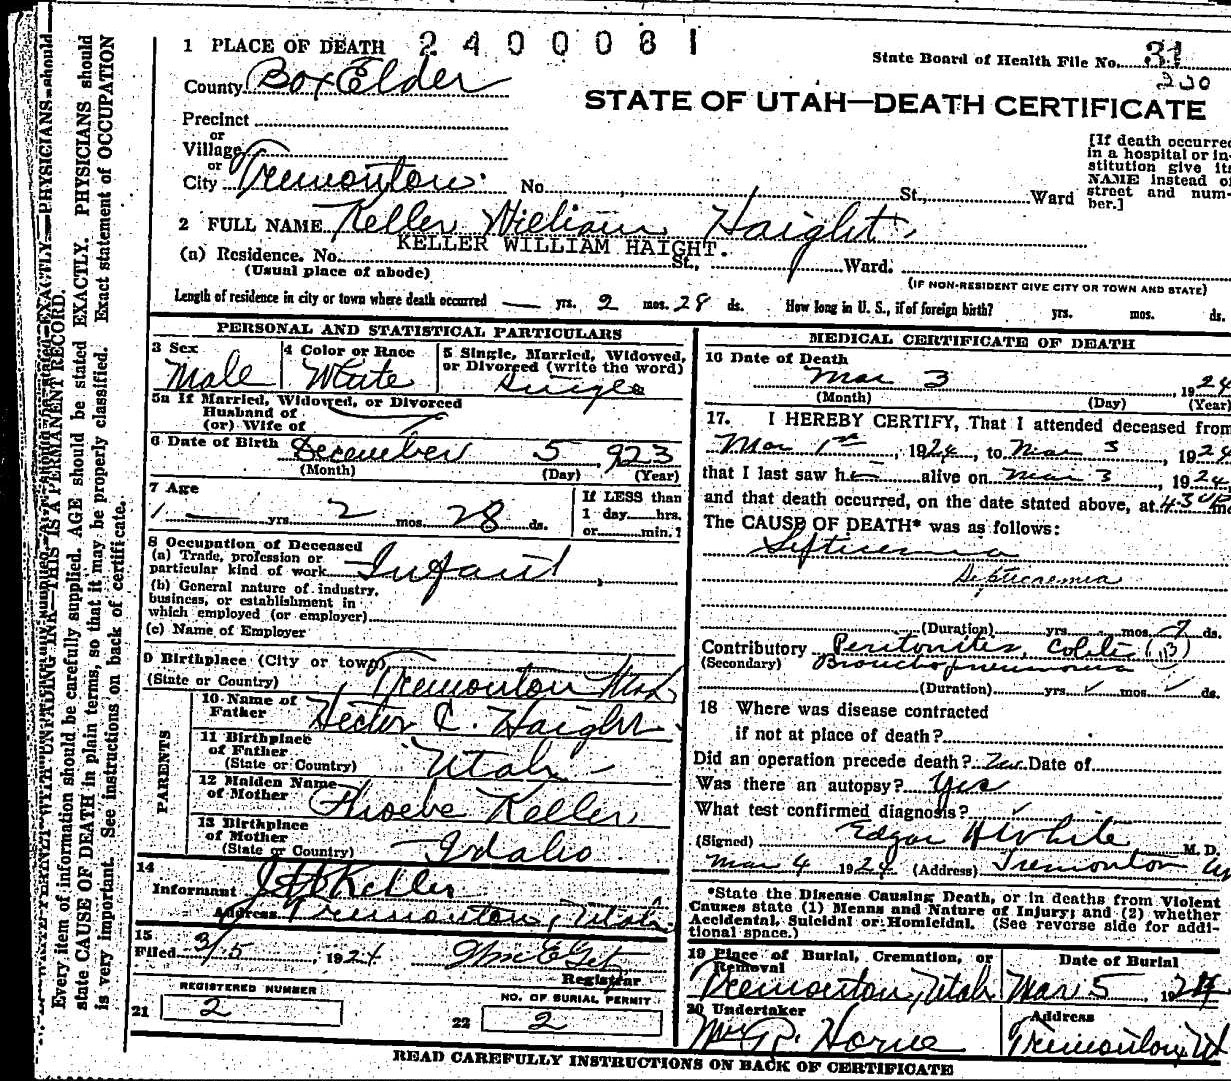 1 PLACE OF DEATH 2400081
State Board of Health File No. 31
230
County Box Elder
STATE OF UTAH—DEATH CERTIFICATE
Precinct
or
Village
or
City Tremonton. No. St., Ward
[If death occurred
in a hospital or in-
stitution give its
NAME instead of
street and num-
ber.]
2 FULL NAME Keller William Haight.
KELLER WILLIAM HAIGHT.
(a) Residence. No. St., Ward.
(Usual place of abode)
(IF NON-RESIDENT GIVE CITY OR TOWN AND STATE)
Length of residence in city or town where death occurred — yrs. 2 mos. 28 ds. How long in U. S., if of foreign birth? yrs. mos. ds.
PERSONAL AND STATISTICAL PARTICULARS
3 Sex
Male
4 Color or Race
White
5 Single, Married, Widowed,
or Divorced (write the word)
Single
5a If Married, Widowed, or Divorced
Husband of
(or) Wife of
6 Date of Birth December 5, 923
(Month) (Day) (Year)
7 Age
— yrs. 2 mos. 28 ds.
If LESS than
1 day hrs.
or min.?
8 Occupation of Deceased
(a) Trade, profession or
particular kind of work Infant
(b) General nature of industry,
business, or establishment in
which employed (or employer)
(c) Name of Employer
9 Birthplace (City or town)
(State or Country) Tremonton Utah
PARENTS
10 Name of
Father Hector C. Haight
11 Birthplace
of Father
(State or Country) Utah
12 Maiden Name
of Mother Phoebe Keller
13 Birthplace
of Mother
(State or Country) Idaho.
14
Informant Keller
Address Tremonton, Utah.
15
Filed 3/5, 1924
Registrar
REGISTERED NUMBER
21 2
NO. OF BURIAL PERMIT
22 2
MEDICAL CERTIFICATE OF DEATH
16 Date of Death
Mar 3, 1924
(Month) (Day) (Year)
17. I HEREBY CERTIFY, That I attended deceased from
Mar 1st, 1924, to Mar 3, 1924
that I last saw him alive on Mar 3, 1924,
and that death occurred, on the date stated above, at 4:30
The CAUSE OF DEATH* was as follows:
Septicemia
Septicaemia
(Duration) yrs. mos. 7 ds.
Contributory Peritonites, Colitis (113)
(Secondary) Bronchopneumonia
(Duration) yrs. mos. ds.
18 Where was disease contracted
if not at place of death?
Did an operation precede death? Date of
Was there an autopsy? Yes
What test confirmed diagnosis?
(Signed) Edgar H White M. D.
Mar 4 1924 (Address) Tremonton
*State the Disease Causing Death, or in deaths from Violent
Causes state (1) Means and Nature of Injury; and (2) whether
Accidental, Suicidal or Homicidal. (See reverse side for addi-
tional space.)
19 Place of Burial, Cremation, or
Removal
Tremonton, Utah
Date of Burial
Mar 5 1924
20 Undertaker
Wm P. Horne
Address
Tremonton, Ut
READ CAREFULLY INSTRUCTIONS ON BACK OF CERTIFICATE
Every item of information should be carefully supplied. AGE should be stated EXACTLY. PHYSICIANS should
state CAUSE OF DEATH in plain terms, so that it may be properly classified. Exact statement of OCCUPATION
is very important. See instructions on back of certificate.